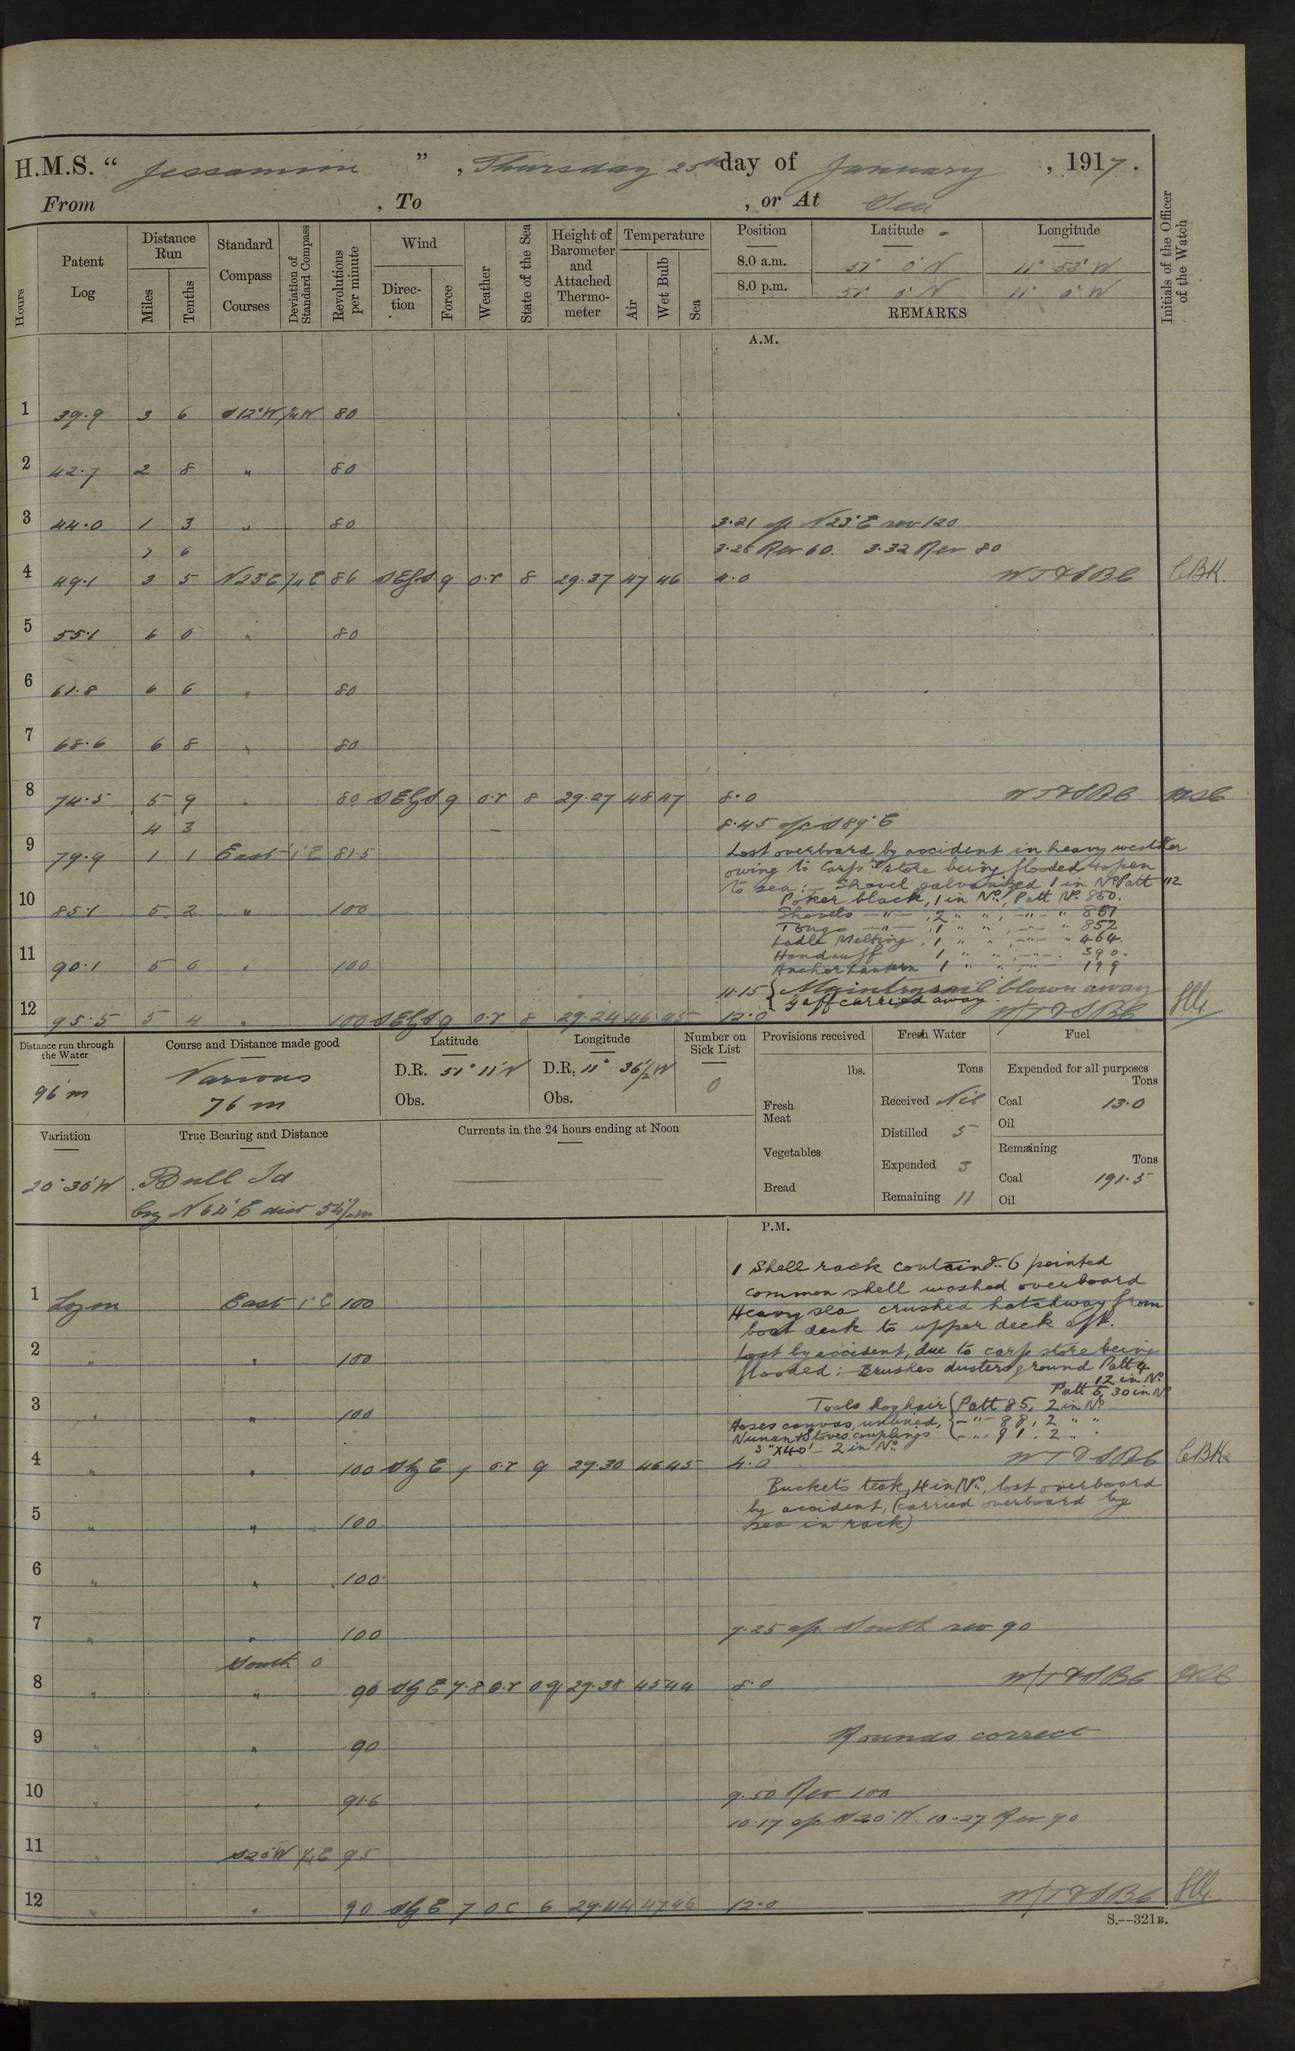 H.M.S. “ Jessamine ” , Thursday 25th day of January , 1917.
From , To , or At Sea
Hours
Patent Log
Distance Run
Miles
Tenths
Standard Compass Courses
Deviation of Standard Compass
Revolutions per minute
Wind
Direction
Force
Weather
State of the Sea
Height of Barometer and Attached Thermometer
Temperature
Air
Wet Bulb
Sea
Position Latitude Longitude
8.0 a.m. 51° 0' N 11° 53' W
8.0 p.m. 51° 0' N 11° 0' W
REMARKS
Initials of the Officer of the Watch
A.M.
1 39.9 3 6 S12°W ¼W 80
2 42.7 2 8 " 80
3 44.0 1 3 " 80 3.21 a/c N23°E rev 120
6 3.28 Rev 60. 3.32 Rev 80
4 49.1 3 5 N23°E ¼E 86 SEbS 9 o.r 8 29.37 47 46 4.0 CBK.
5 55.1 6 0 " 80
6 61.8 6 6 " 80
7 68.6 6 8 " 80
8 74.5 5 9 " 80 SEbS 9 o.r 8 29.27 48 47 8.0
4 3 8.45 a/c S89°E
9 79.9 1 1 East 1°E 81.5 Lost overboard by accident in heavy weather
owing to Carp'rs store being flooded & open
to sea :- Shovel galvanized 1 in No Patt 112
10 85.1 5 2 " 100 Poker black, 1 in No, Patt No. 850.
Shovels -"- , 2 " " , -"- " 851
Tongs -"- , 1 " " , -"- " 852
Ladle Melting, 1 " " , -"- " 464.
11 90.1 5 0 " 100 Handcuff 1 " " , -"- . 390.
Anchor Lantern 1 " " , -"- 199
11.15 { Maintrysail blown away
gaff carried away.
12 95.5 5 4 " 100 SEbS 9 o.r 8 29.24 46 45 12.0
Distance run through the Water
96 m
Course and Distance made good
Various
76 m
Latitude
D.R. 51° 11' N
Obs.
Longitude
D.R. 11° 36½' W
Obs.
Number on Sick List
0
Provisions received
lbs.
Fresh Meat
Vegetables
Bread
Fresh Water
Tons
Received Nil
Distilled 5
Expended 5
Remaining 11
Fuel
Expended for all purposes
Tons
Coal 13.0
Oil
Remaining
Tons
Coal 191.5
Oil
Variation
20° 30' W
True Bearing and Distance
Bull Id
Currents in the 24 hours ending at Noon
P.M.
1 Shell rack containd. 6 pointed
common shell washed overboard
1 East 1°E 100 Heavy sea crushed hatchway from
boat deck to upper deck aft.
2 " " 100 Lost by accident, due to carp store being
flooded: Brushes dusters ground Patt 4
12 in No
Patt 5, 30 in No
3 " " 100 Tools hog hair { Patt 85, 2 in No
Hoses canvas, unlined, { -"- 88, 2 " "
Nunan & Stoves couplings { -"- 91. 2 " "
3" X 40' - 2 in No
4 " " 100 SbE 7 o.r 9 29.30 46 45 4.0 CBK
Buckets teak, 4 in No., lost overboard
by accident, (carried overboard by
5 " " 100 sea in rack)
6 " " 100
7 " " 100 7.25 a/c South rev 90
South 0
8 " " 96 SbE 7.8 o.r 29.38 45 44 8.0
9 " " 90 Rounds correct
10 " " 91.6 9.50 Rev 100
10.17 a/c S20°W. 10.27 Rev 90
11 " S20°W ¼E 95
12 " " 90 SbE 7 o c 6 29.44 47 46 12.0
S.--321B.